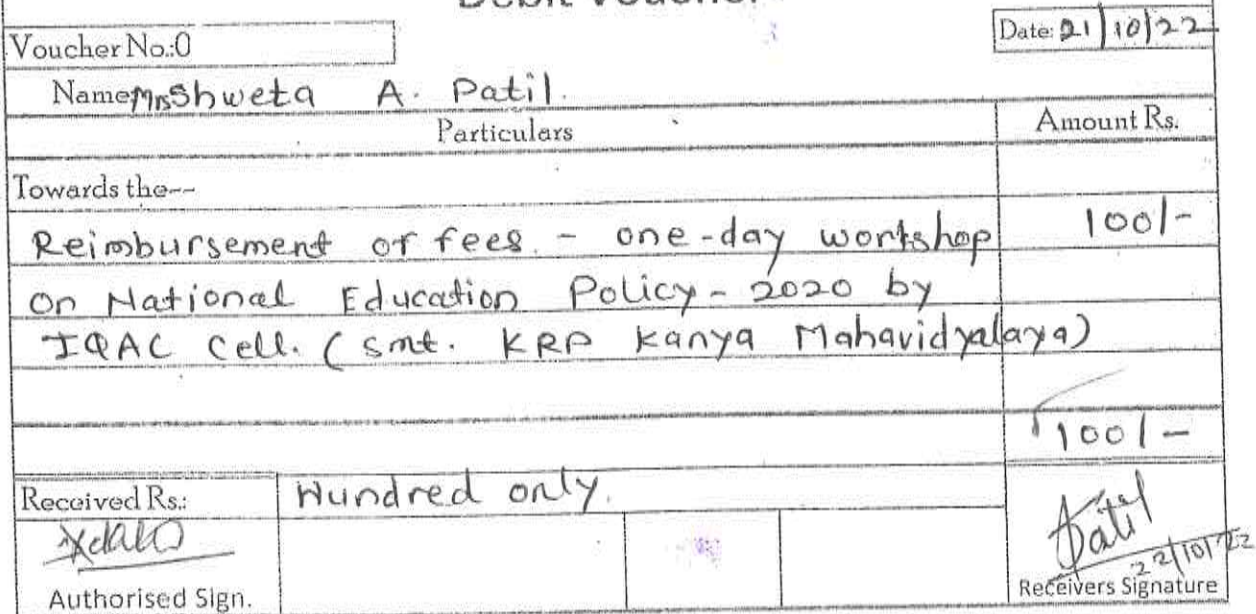 Debit Voucher
Voucher No.:0
Date: 21/10/22
Name Mrs Shweta A. Patil.
Particulars
Amount Rs.
Towards the--
Reimbursement of fees - one-day workshop 100/-
on National Education Policy - 2020 by
IQAC Cell. (smt. KRP Kanya Mahavidyalaya)
100/-
Received Rs.: Hundred only.
Patil
22/10/22
Authorised Sign.
Receivers Signature